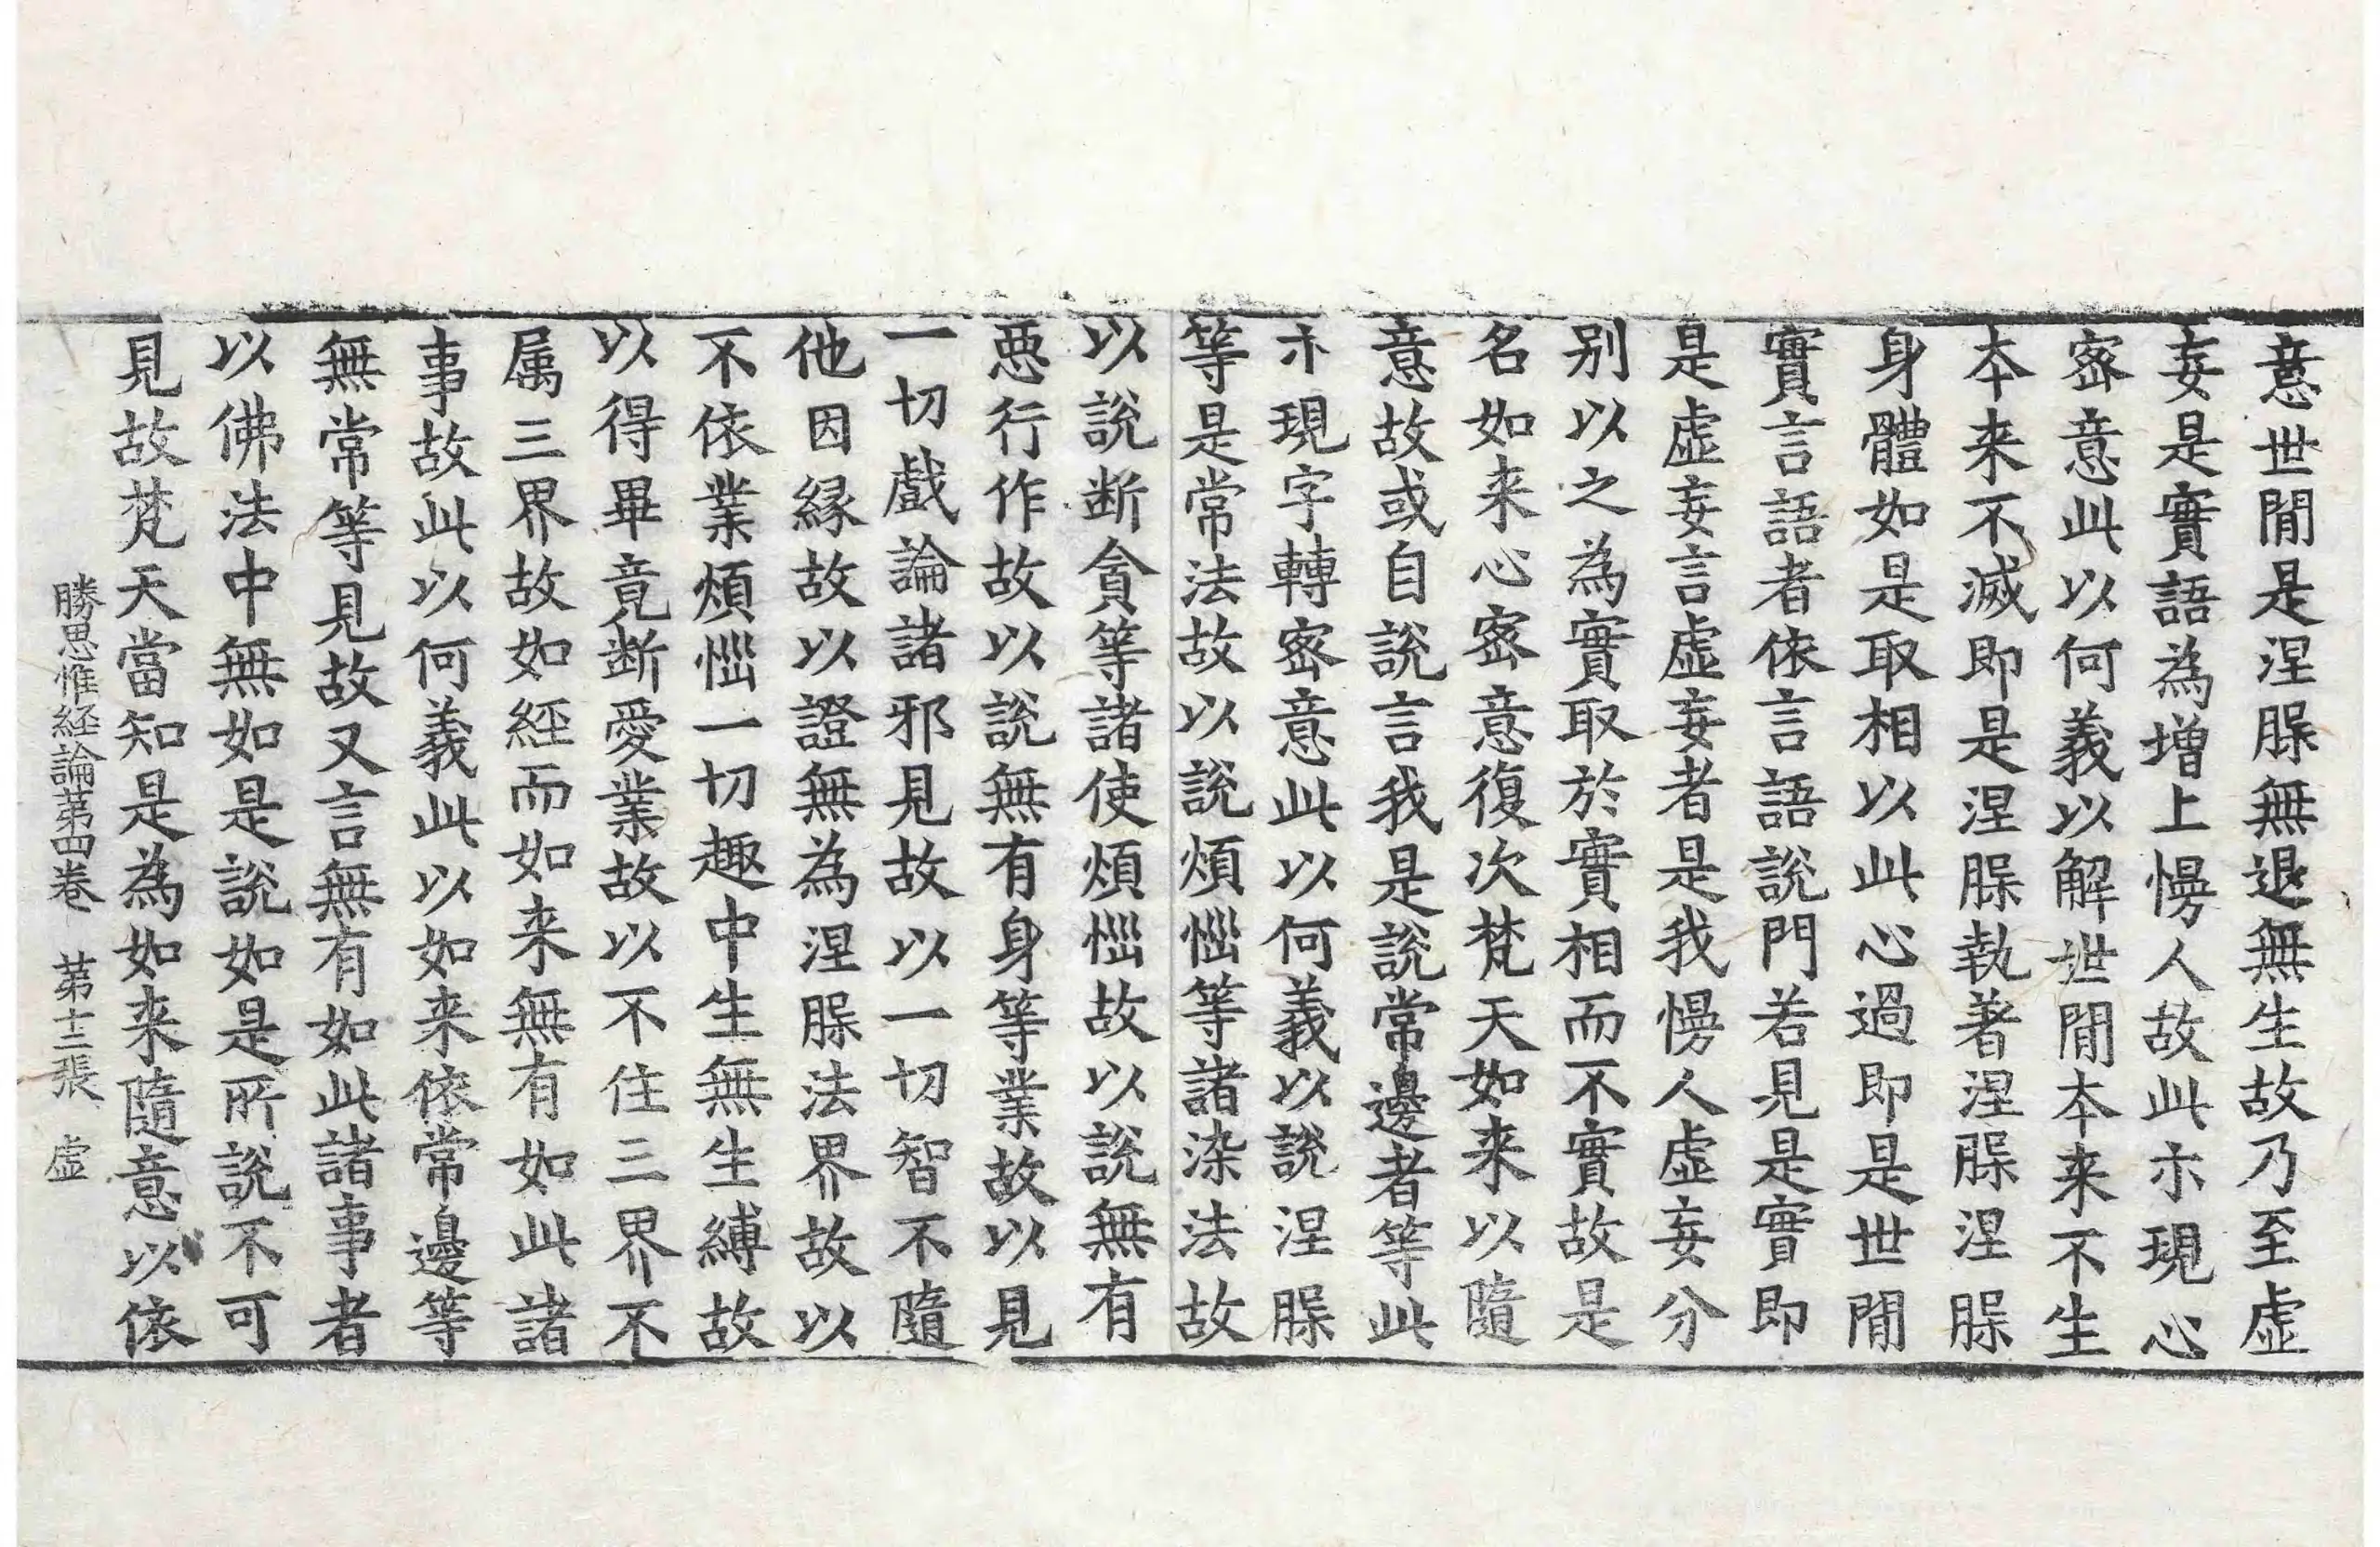 意世間是涅槃無退無生故乃至虛
妄是實語為增上慢人故此示現心
密意此以何義以解世間本来不生
本来不滅即是涅槃執著涅槃涅槃
身體如是取相以此心過即是世間
實言語者依言語說門若見是實即
是虛妄言虛妄者是我慢人虛妄分
别以之為實取於實相而不實故是
名如来心密意復次梵天如来以隨
意故或自說言我是說常邊者等此
示現字轉密意此以何義以說涅槃
等是常法故以說煩惱等諸染法故
以說断貪等諸使煩惱故以說無有
惡行作故以說無有身等業故以見
一切戲論諸邪見故以一切智不隨
他因縁故以證無為涅槃法界故以
不依業煩惱一切趣中生無生縛故
以得畢竟断愛業故以不住三界不
属三界故如經而如来無有如此諸
事故此以何義此以如来依常邊等
無常等見故又言無有如此諸事者
以佛法中無如是說如是所說不可
見故梵天當知是為如来隨意以依
勝思惟経論第四卷　第十三張　虛